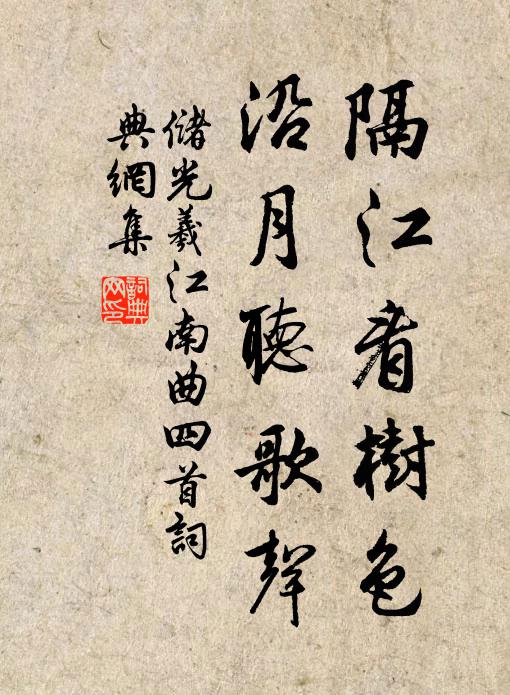 隔江看樹色
沿月聽歌聲
儲光羲江南曲四首詞
典網集
詞典
网印